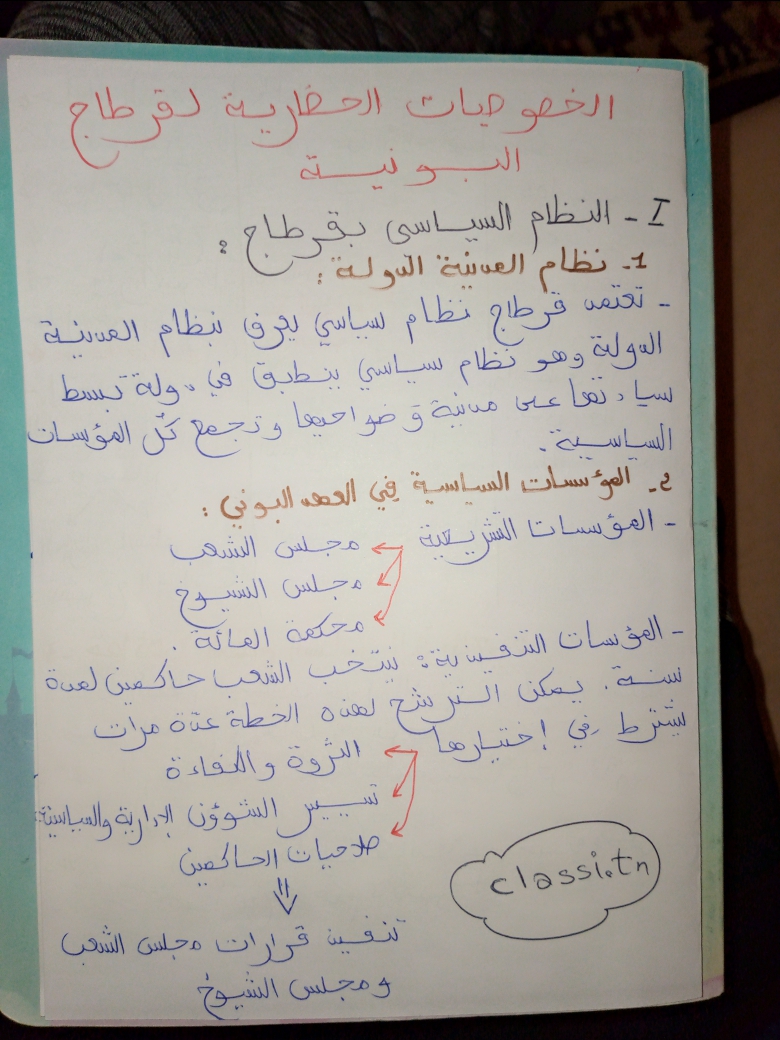 الخصوصيات الحضارية لقرطاج
البونية
I - النظام السياسي بقرطاج :
1. نظام المدينة الدولة :
- تعتمد قرطاج نظام سياسي يعرف بنظام المدينة
الدولة وهو نظام سياسي ينطبق في دولة تبسط
سيادتها على مدينة و ضواحيها و تجمع كل المؤسسات
السياسية.
2. المؤسسات السياسية في العهد البوني :
- المؤسسات التشريعية مجلس الشعب
مجلس الشيوخ
محكمة المائة .
- المؤسسات التنفيذية : ينتخب الشعب حاكمين لمدة
سنة. يمكن الترشح لهذه الخطة عدة مرات
يشترط في إختيارها الثروة والكفاءة
تسيير الشوؤن الإدارية والسياسية
صلاحيات الحاكمين
تنفيذ قرارات مجلس الشعب
ومجلس الشيوخ
classi.tn